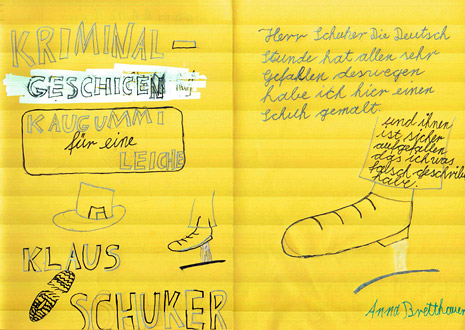 KRIMINAL-
GESCHICEN
KAUGUMMI
für eine
LEICHE
KLAUS
SCHUKER
Herr Schuker Die Deutsch
Stunde hat allen sehr
Gefahlen deswegen
habe ich hier einen
Schuh gemalt.
und ihnen
ist sicher
aufgefallen
das ich was
falsch geschriben
habe.
Anna Bretthauer